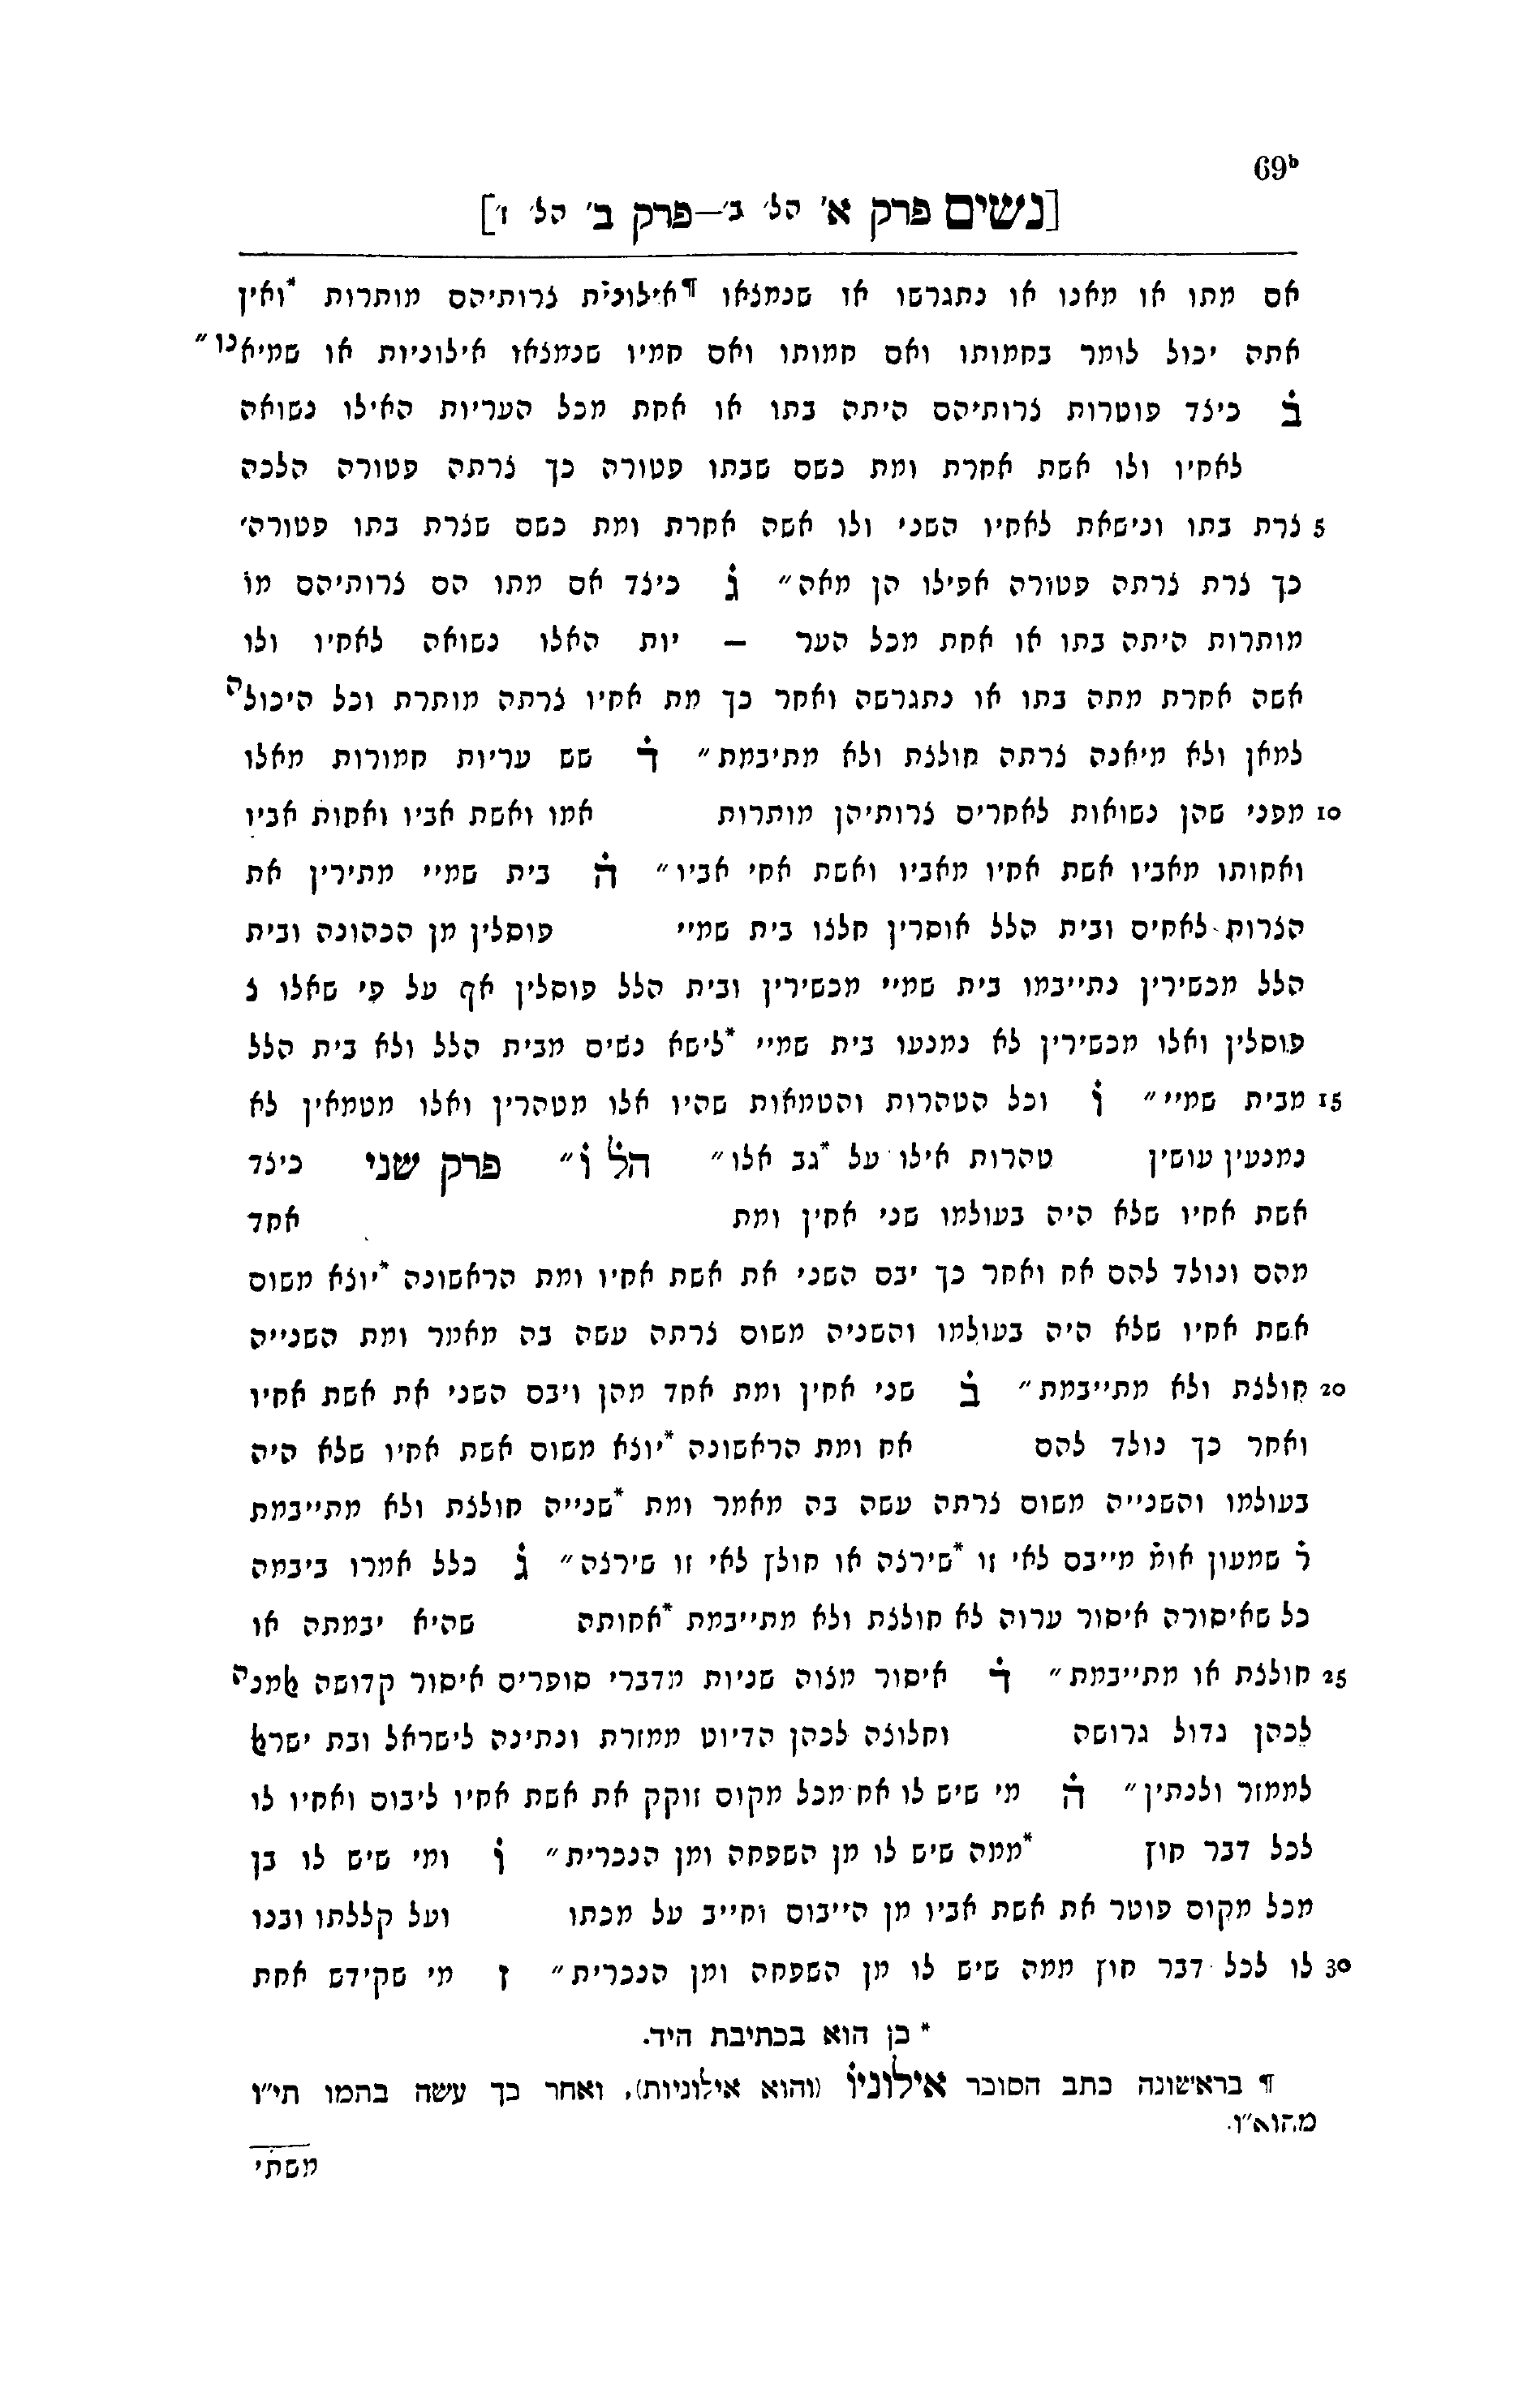 69ᵇ
[נשים פרק א׳ הל׳ ב׳—פרק ב׳ הל׳ ז׳]
אם מתו או מאנו או נתגרשו או שנמצאו ¶אילונית צרותיהם מותרות *ואין
אתה יכול לומר בחמותו ואם חמותו ואם חמיו שנמצאו אילוניות או שמיאנו״
בׄ כיצד פוטרות צרותיהם היתה בתו או אחת מכל העריות האילו נשואה
לאחיו ולו אשת אחרת ומת כשם שבתו פטורה כך צרתה פטורה הלכה
5 צרת בתו ונישאת לאחיו השני ולו אשה אחרת ומת כשם שצרת בתו פטורה׳
כך צרת צרתה פטורה אפילו הן מאה״ גׄ כיצד אם מתו הם צרותיהם מוׄ
מותרות היתה בתו או אחת מכל הער — יות האלו נשואה לאחיו ולו
אשה אחרת מתה בתו או נתגרשה ואחר כך מת אחיו צרתה מותרת וכל היכולה
למאן ולא מיאנה צרתה חולצת ולא מתיבמת״ דׄ שש עריות חמורות מאלו
10 מפני שהן נשואות לאחרים צרותיהן מותרות אמו ואשת אביו ואחות אביו
ואחותו מאביו אשת אחיו מאביו ואשת אחי אביו״ הׄ בית שמיי מתירין את
הצרות לאחים ובית הלל אוסרין חלצו בית שמיי פוסלין מן הכהונה ובית
הלל מכשירין נתייבמו בית שמיי מכשירין ובית הלל פוסלין אף על פי שאלו צ
פוסלין ואלו מכשירין לא נמנעו בית שמיי *לישא נשים מבית הלל ולא בית הלל
15 מבית שמיי״ וׄ וכל הטהרות והטמאות שהיו אלו מטהרין ואלו מטמאין לא
נמנעין עושין טהרות אילו על *גב אלו״ הלׄ וׄ״ פרק שני כיצד
אשת אחיו שלא היה בעולמו שני אחין ומת אחד
מהם ונולד להם אח ואחר כך יבם השני את אשת אחיו ומת הראשונה *יוצא משום
אשת אחיו שלא היה בעולמו והשניה משום צרתה עשה בה מאמר ומת השנייה
20 חולצת ולא מתייבמת״ בׄ שני אחין ומת אחד מהן ויבם השני את אשת אחיו
ואחר כך נולד להם אח ומת הראשונה *יוצא משום אשת אחיו שלא היה
בעולמו והשנייה משום צרתה עשה בה מאמר ומת *שנייה חולצת ולא מתייבמת
רׄ שמעון אומׄ מייבם לאי זו *שירצה או חולץ לאי זו שירצה״ גׄ כלל אמרו ביבמה
כל שאיסורה איסור ערוה לא חולצת ולא מתייבמת *אחותה שהיא יבמתה או
25 חולצת או מתייבמת״ דׄ איסור מצוה שניות מדברי סופרים איסור קדושה אלמנה
לכהן גדול גרושה וחלוצה לכהן הדיוט ממזרת ונתינה לישראל ובת ישראל
לממזר ולנתין״ הׄ מי שיש לו אח מכל מקום זוקק את אשת אחיו ליבום ואחיו לו
לכל דבר חוץ *ממה שיש לו מן השפחה ומן הנכרית״ וׄ ומי שיש לו בן
מכל מקום פוטר את אשת אביו מן הייבום וחייב על מכתו ועל קללתו ובנו
30 לו לכל דבר חוץ ממה שיש לו מן השפחה ומן הנכרית״ ז מי שקידש אחת
* כן הוא בכתיבת היד.
¶ בראשונה כתב הסופר אילוניוׄ (והוא אילוניות), ואחר כך עשה בהמו תי״ו
מהוא״ו.
משתי